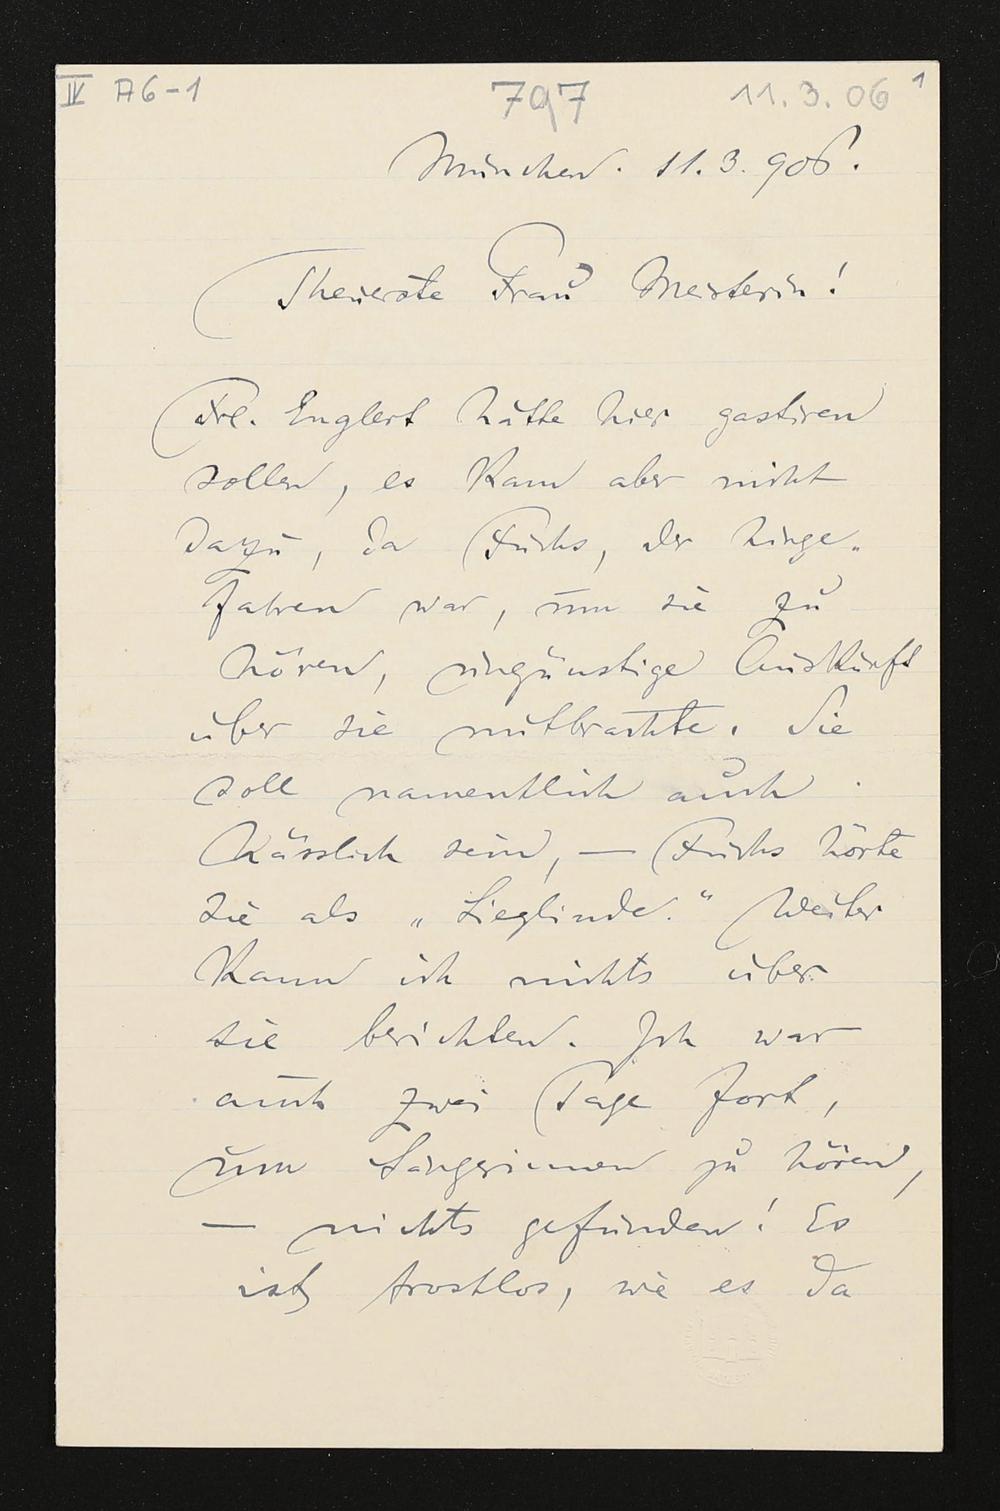 IV A6-1 797 11.3.06 1
München. 11.3.906.
Theuerste Frau Meisterin!
Frl. Englert hätte hier gastiren
sollen, es kam aber nicht
dazu, da Fuchs, der hinge-
fahren war, um sie zu
hören, ungünstige Auskunft
über sie mitbrachte. Sie
soll namentlich auch
hässlich sein, — Fuchs hörte
sie als „Sieglinde." Weiter
kann ich nichts über
sie berichten. Ich war
auch zwei Tage fort,
um Sängerinnen zu hören,
— nichts gefunden! Es
ist trostlos, wie es da